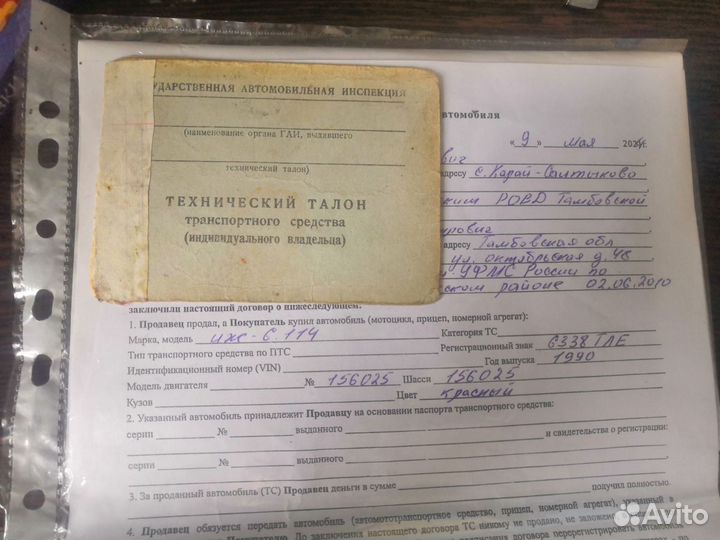 ГОСУДАРСТВЕННАЯ АВТОМОБИЛЬНАЯ ИНСПЕКЦИЯ
(наименование органа ГАИ, выдавшего
технический талон)
ТЕХНИЧЕСКИЙ ТАЛОН
транспортного средства
(индивидуального владельца)
автомобиля
« 9 » мая
адресу с. Карай-Салтыково
РОВД Тамбовской
адресу Тамбовская обл
ул. Октябрьская д. 48
УФМС России по
районе 02.06.2010
заключили настоящий договор о нижеследующем:
1. Продавец продал, а Покупатель купил автомобиль (мотоцикл, прицеп, номерной агрегат):
Марка, модель иж-6.114 Категория ТС
Тип транспортного средства по ПТС Регистрационный знак 6338 ТЛЕ
Идентификационный номер (VIN) Год выпуска 1990
Модель двигателя № 156025 Шасси 156025
Кузов Цвет красный
2. Указанный автомобиль принадлежит Продавцу на основании паспорта транспортного средства:
серии № выданного
и свидетельства о регистрации:
серии № выданного
3. За проданный автомобиль (ТС) Продавец деньги в сумме получил полностью.
4. Продавец обязуется передать автомобиль (автомототранспортное средство, прицеп, номерной агрегат), указанный
До заключения настоящего договора ТС никому не продано, не заложено
договора перерегистрировать автомобиль
Avito